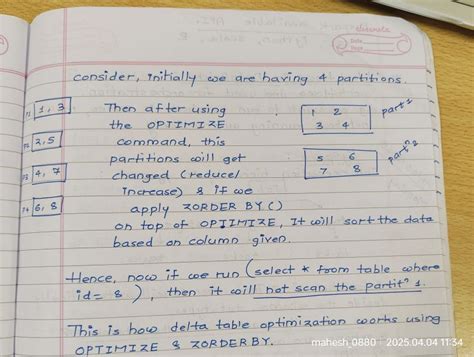 classmate
Date
Page
consider, initially we are having 4 partitions.
P1 1, 3
P2 2, 5
P3 4, 7
P4 6, 8
Then after using
the OPTIMIZE
command, this
partitions will get
changed (reduce/
increase) & if we
apply ZORDER BY()
on top of OPTIMIZE, It will sort the data
based on column given.
1 2
3 4
part^n 1
5 6
7 8
part^n 2
Hence, now if we run (select * from table where
id = 8), then it will not scan the partit^n 1.
This is how delta table optimization works using
OPTIMIZE & ZORDER BY.
mahesh_0880 | 2025.04.04 11:34